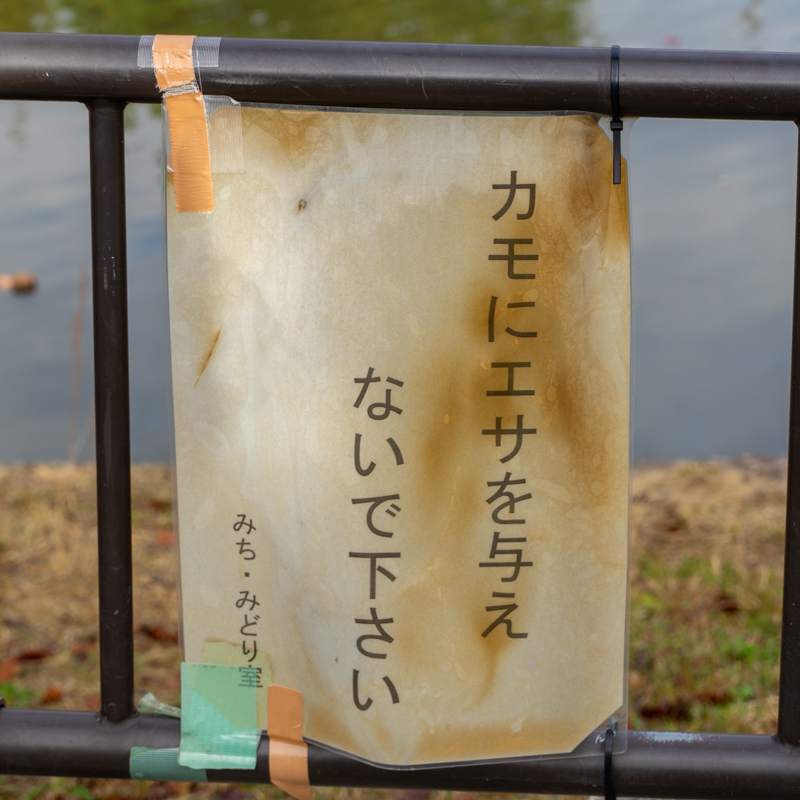 カモにエサを与え
ないで下さい
みち・みどり室